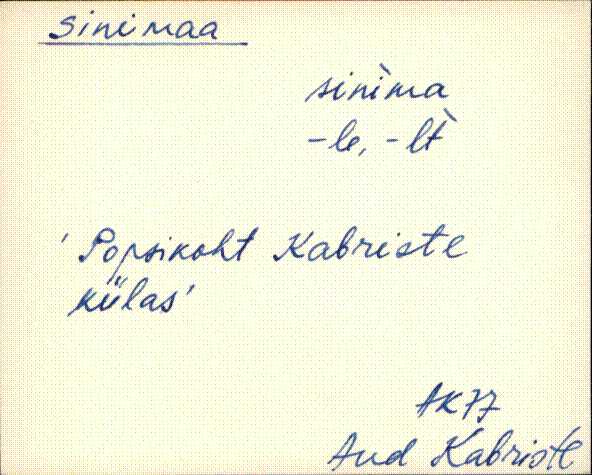 Sinimaa
sinìma
-le, -lt̀
'Popsikoht Kabriste
külas'
AK77
Aud Kabriste